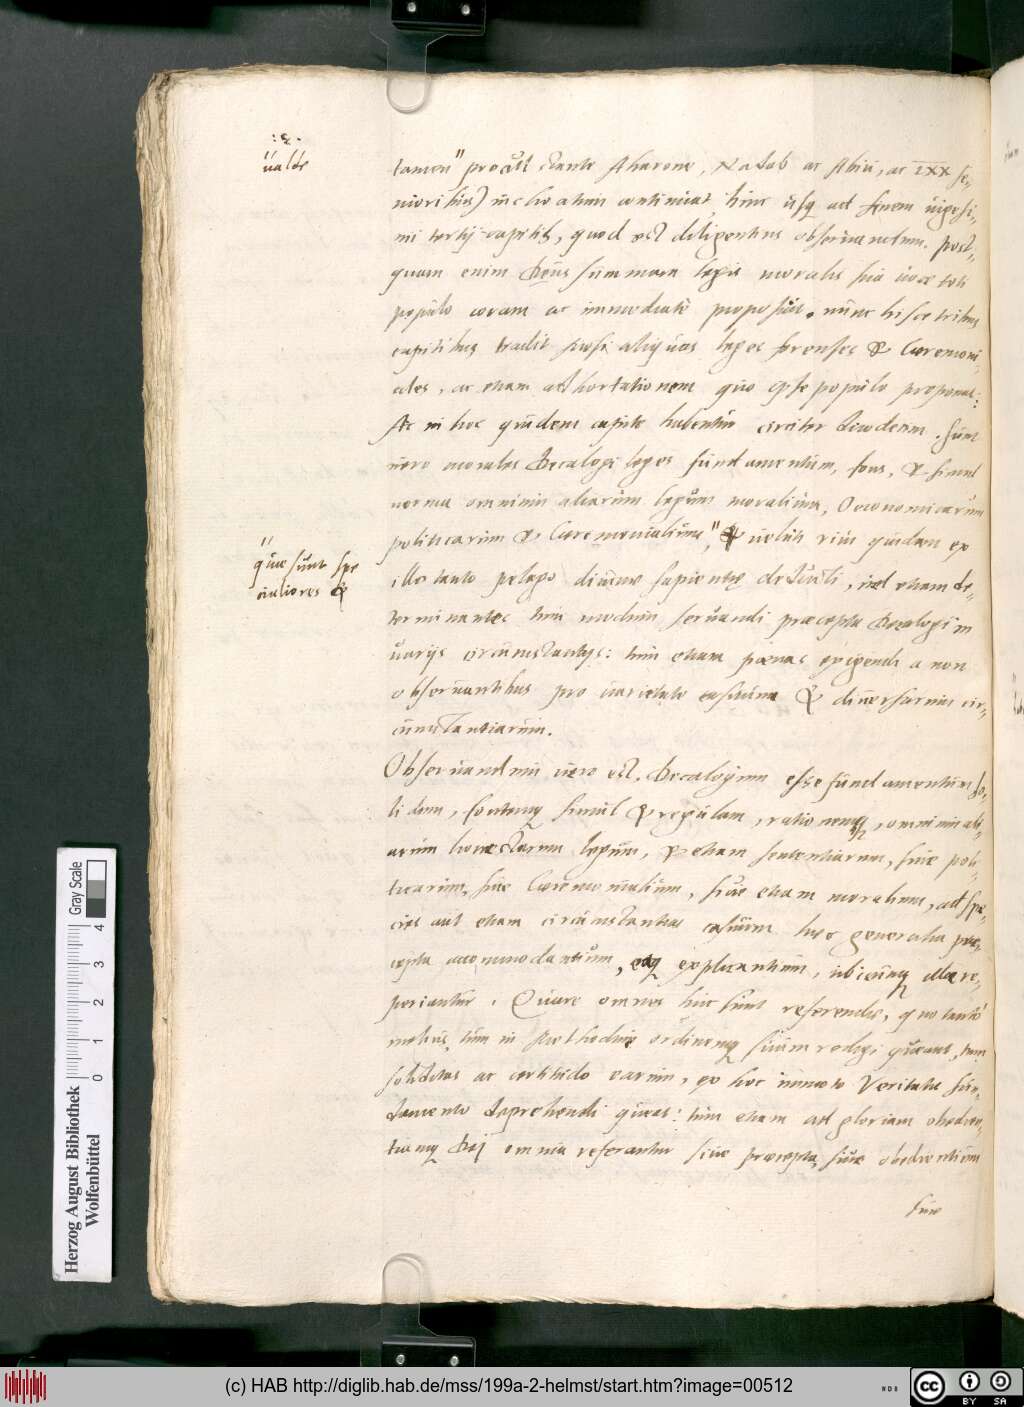 ualde
tamen" procul stante Aharone, Nadab ac Abiu, ac LXX se-
nioribus) inchoatum continuat hinc usq ad finem uigesi-
mi tertij capitis, quod est diligentius obseruandum. Post-
quam enim Deus summam legis moralis sua uoce toti
populo coram ac immediate proposuit, nunc hisce tribus
capitibus tradit Mosi aliquas leges forenses & Caeremoni-
ales, ac etiam adhortationem quo ipse populo proponat:
Ac in hoc quidem capite habentur circiter duodecim. Sunt
uero morales Decalogi leges fundamentum, fons, & simul
norma omnium aliarum legum moralium, Oeconomicarum
politicarum & Caeremonialium," & ueluti riui quidam ex
"
quae sunt spe
ciliores &
illo tanto pelago diuinae sapientiae deducti, uel etiam de-
terminantes tum modum seruandi praecepta Decalogi in
uarijs circumstantijs: tum etiam poenas exigendi a non
obseruantibus pro uarietate casuum & diuersarum cir-
cumstantiarum.
Obseruandum uero est, Decalogum esse fundamentum so-
lidum, fontemq simul & regulam, rationemq, omnium ali-
arum honestarum legum, & etiam sententiarum, siue poli-
ticarum, siue Caeremonialium, siue etiam moralium, ad spe-
cies aut etiam circumstantias casuum haec generalia prae-
cepta accommodantium, eaq explicantium, ubicunq illa re-
periantur. Quare omnes huc sunt referendae, quo tanto
melius, tum in Methodum ordinemq suum redigi queant, tum
soliditas ac certitudo earum, ex hoc immoto Veritatis fun-
damento deprehendi queat: tum etiam ad gloriam obedien-
tiamq Dei omnia referantur siue praecepta, siue obedientiam
siue
Herzog August Bibliothek
Wolfenbüttel
0 1 2 3 4
Gray Scale
(c) HAB http://diglib.hab.de/mss/199a-2-helmst/start.htm?image=00512
cc BY SA